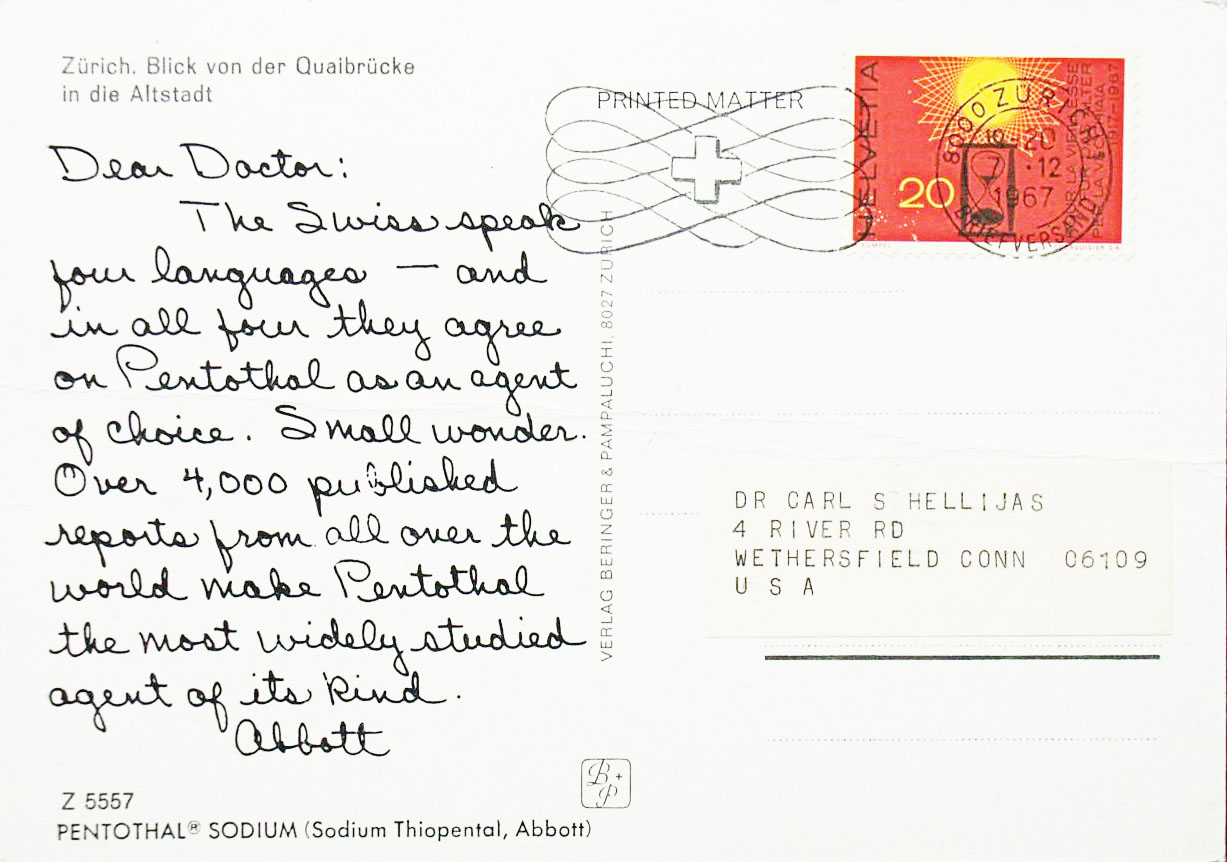 Zürich. Blick von der Quaibrücke
in die Altstadt
Dear Doctor:
The Swiss speak
four languages — and
in all four they agree
on Pentothal as an agent
of choice. Small wonder.
Over 4,000 published
reports from all over the
world make Pentothal
the most widely studied
agent of its kind.
Abbott
Z 5557
PENTOTHAL® SODIUM (Sodium Thiopental, Abbott)
VERLAG BERINGER & PAMPALUCHI, 8027 ZÜRICH
B+P
PRINTED MATTER
HELVETIA
20
POUR LA VIEILLESSE
FÜR DAS ALTER
PER LA VECCHIAIA
1917–1967
8000 ZÜRICH
-20
7.12
1967
BRIEFVERSAND
DR CARL S HELLIJAS
4 RIVER RD
WETHERSFIELD CONN 06109
U S A